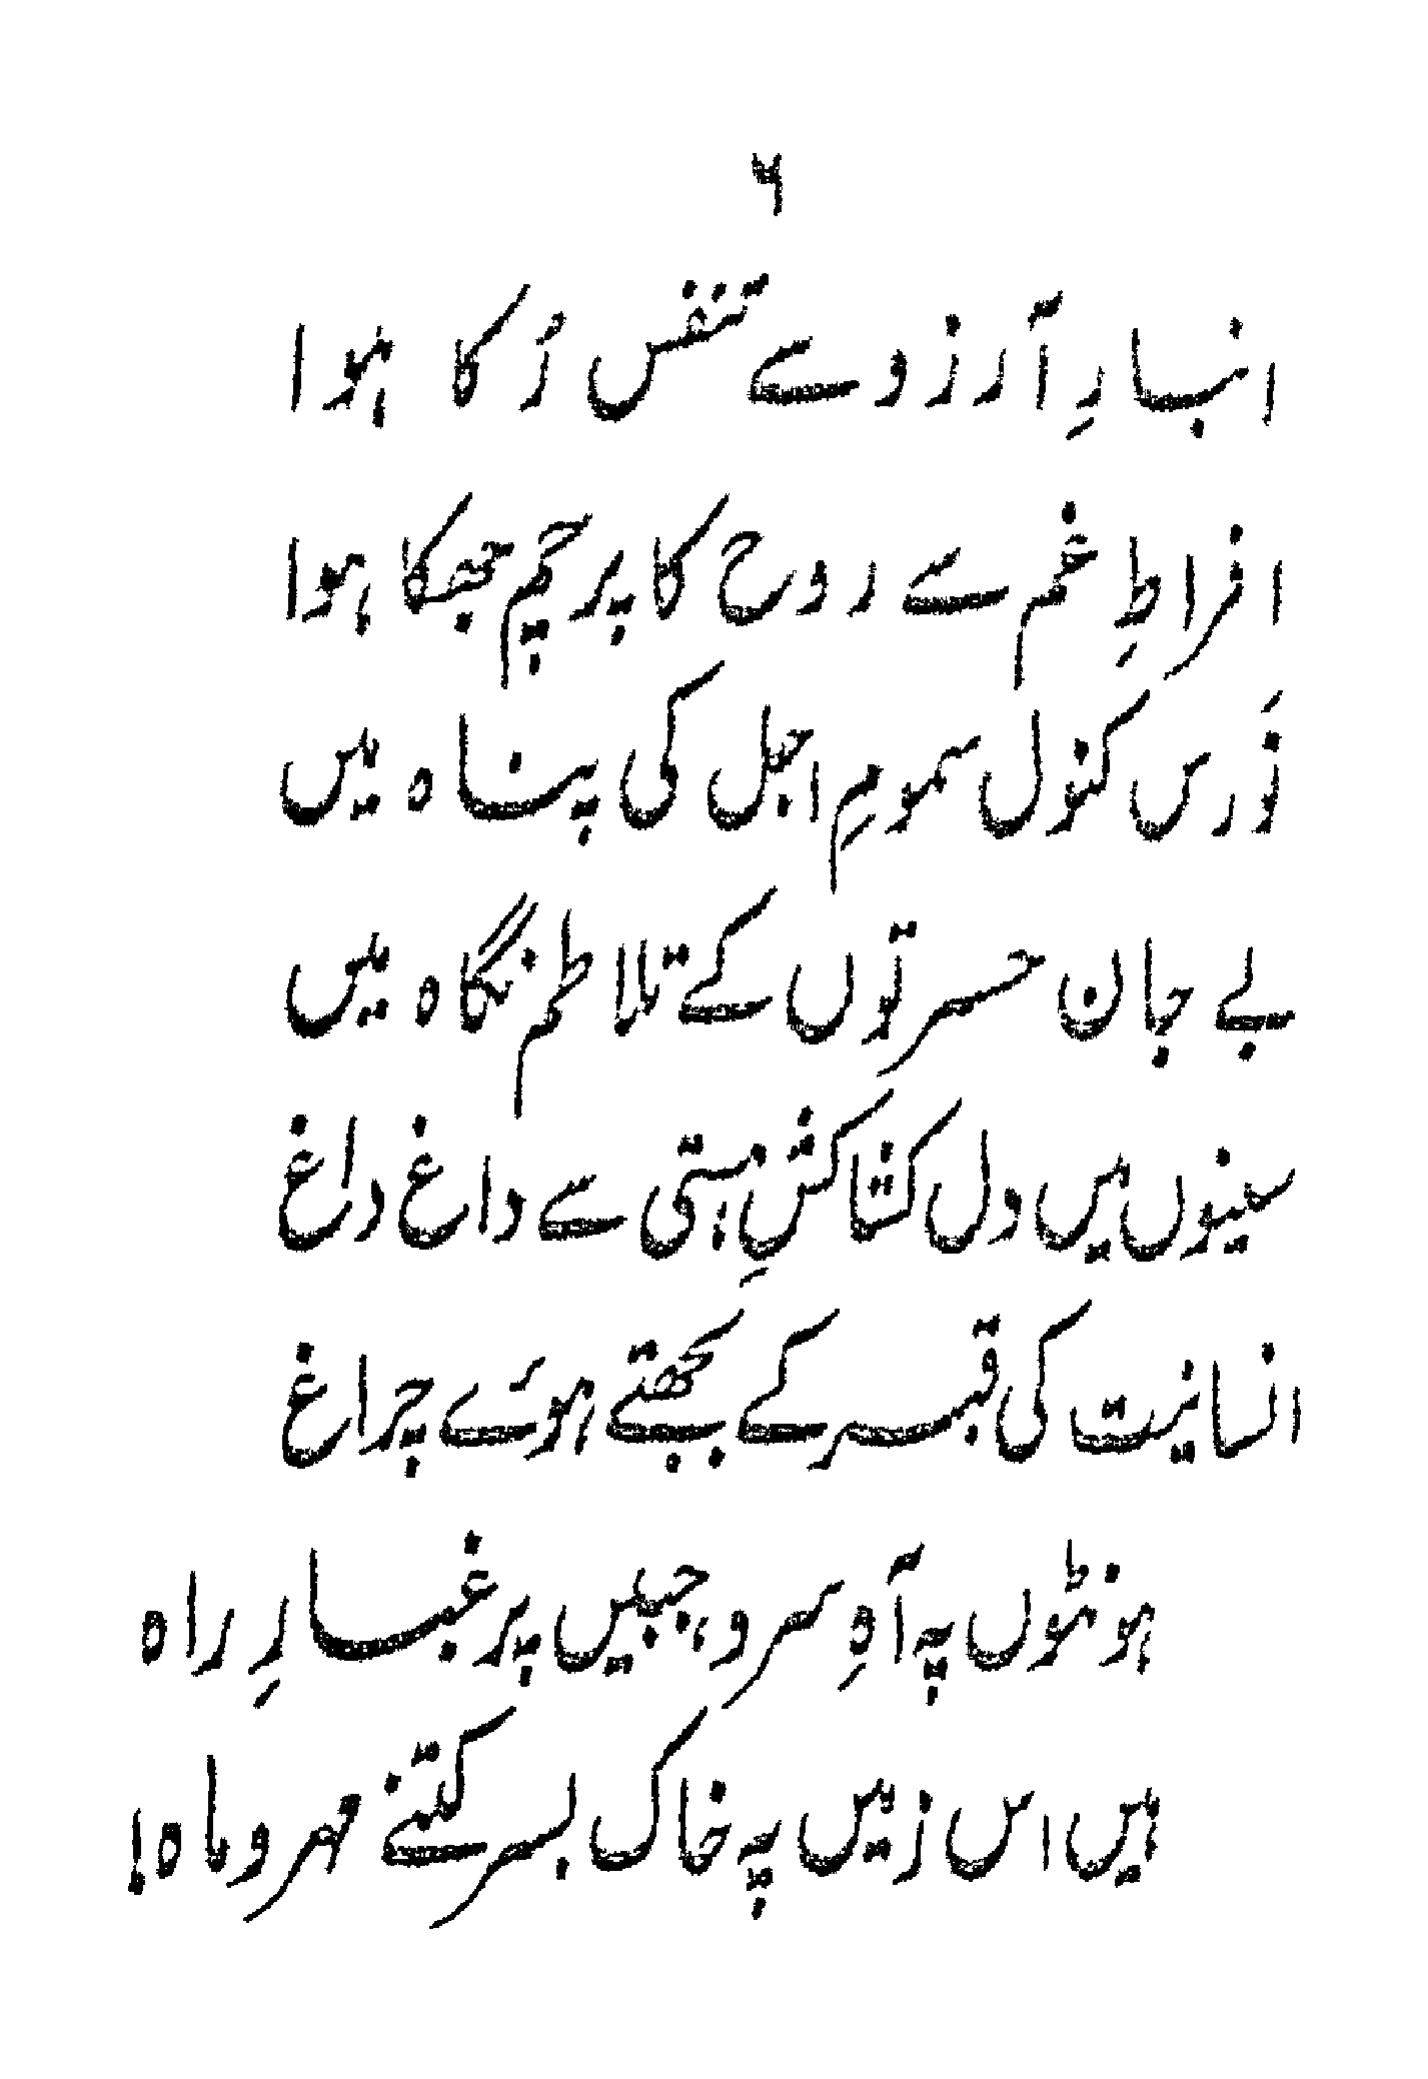 ۶
انبارِ آرزو سے تنفس رُکا ہوا
افراطِ غم سے روح کا پرچم جھکا ہوا
نَورس کنول سمومِ اجل کی پناہ میں
بے جان حسرتوں کے تلاطم نگاہ میں
سینوں میں دل کشاکشِ ہستی سے داغ داغ
انسانیت کی قبر کے بجھتے ہوئے چراغ
ہونٹوں پہ آہِ سرد، جبیں پر غبارِ راہ
ہیں اس زمیں پہ خاک بسر کتنے مہر و ماہ!